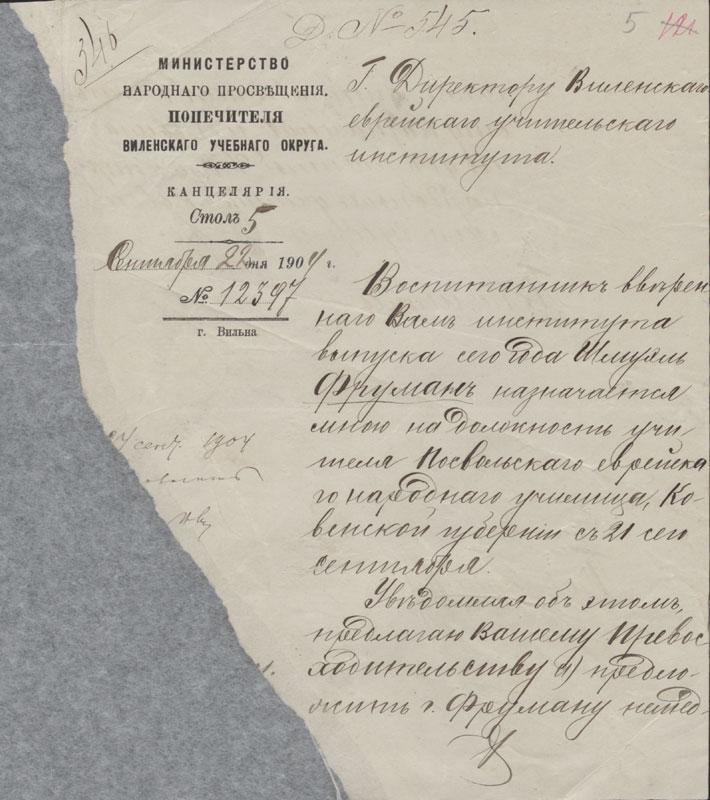 346
Д. № 545.
5 121
МИНИСТЕРСТВО
НАРОДНАГО ПРОСВѢЩЕНІЯ.
ПОПЕЧИТЕЛЯ
ВИЛЕНСКАГО УЧЕБНАГО ОКРУГА.
КАНЦЕЛЯРІЯ.
Столъ 5
Сентября 22 дня 1904 г.
№ 12397
г. Вильна
Г. Директору Виленскаго
еврейскаго учительскаго
института.
Воспитанникъ ввѣрен
наго Вамъ института
выпуска сего года Шмуэль
Фруманъ назначается
мною на должность учи
теля Посвольскаго еврейска
го народнаго училища, Ко-
венской губерніи съ 21 сего
сентября.
Увѣдомляя объ этомъ,
предлагаю Вашему Превос
ходительству а) предло-
жить г. Фруману немед-
сент. 1904